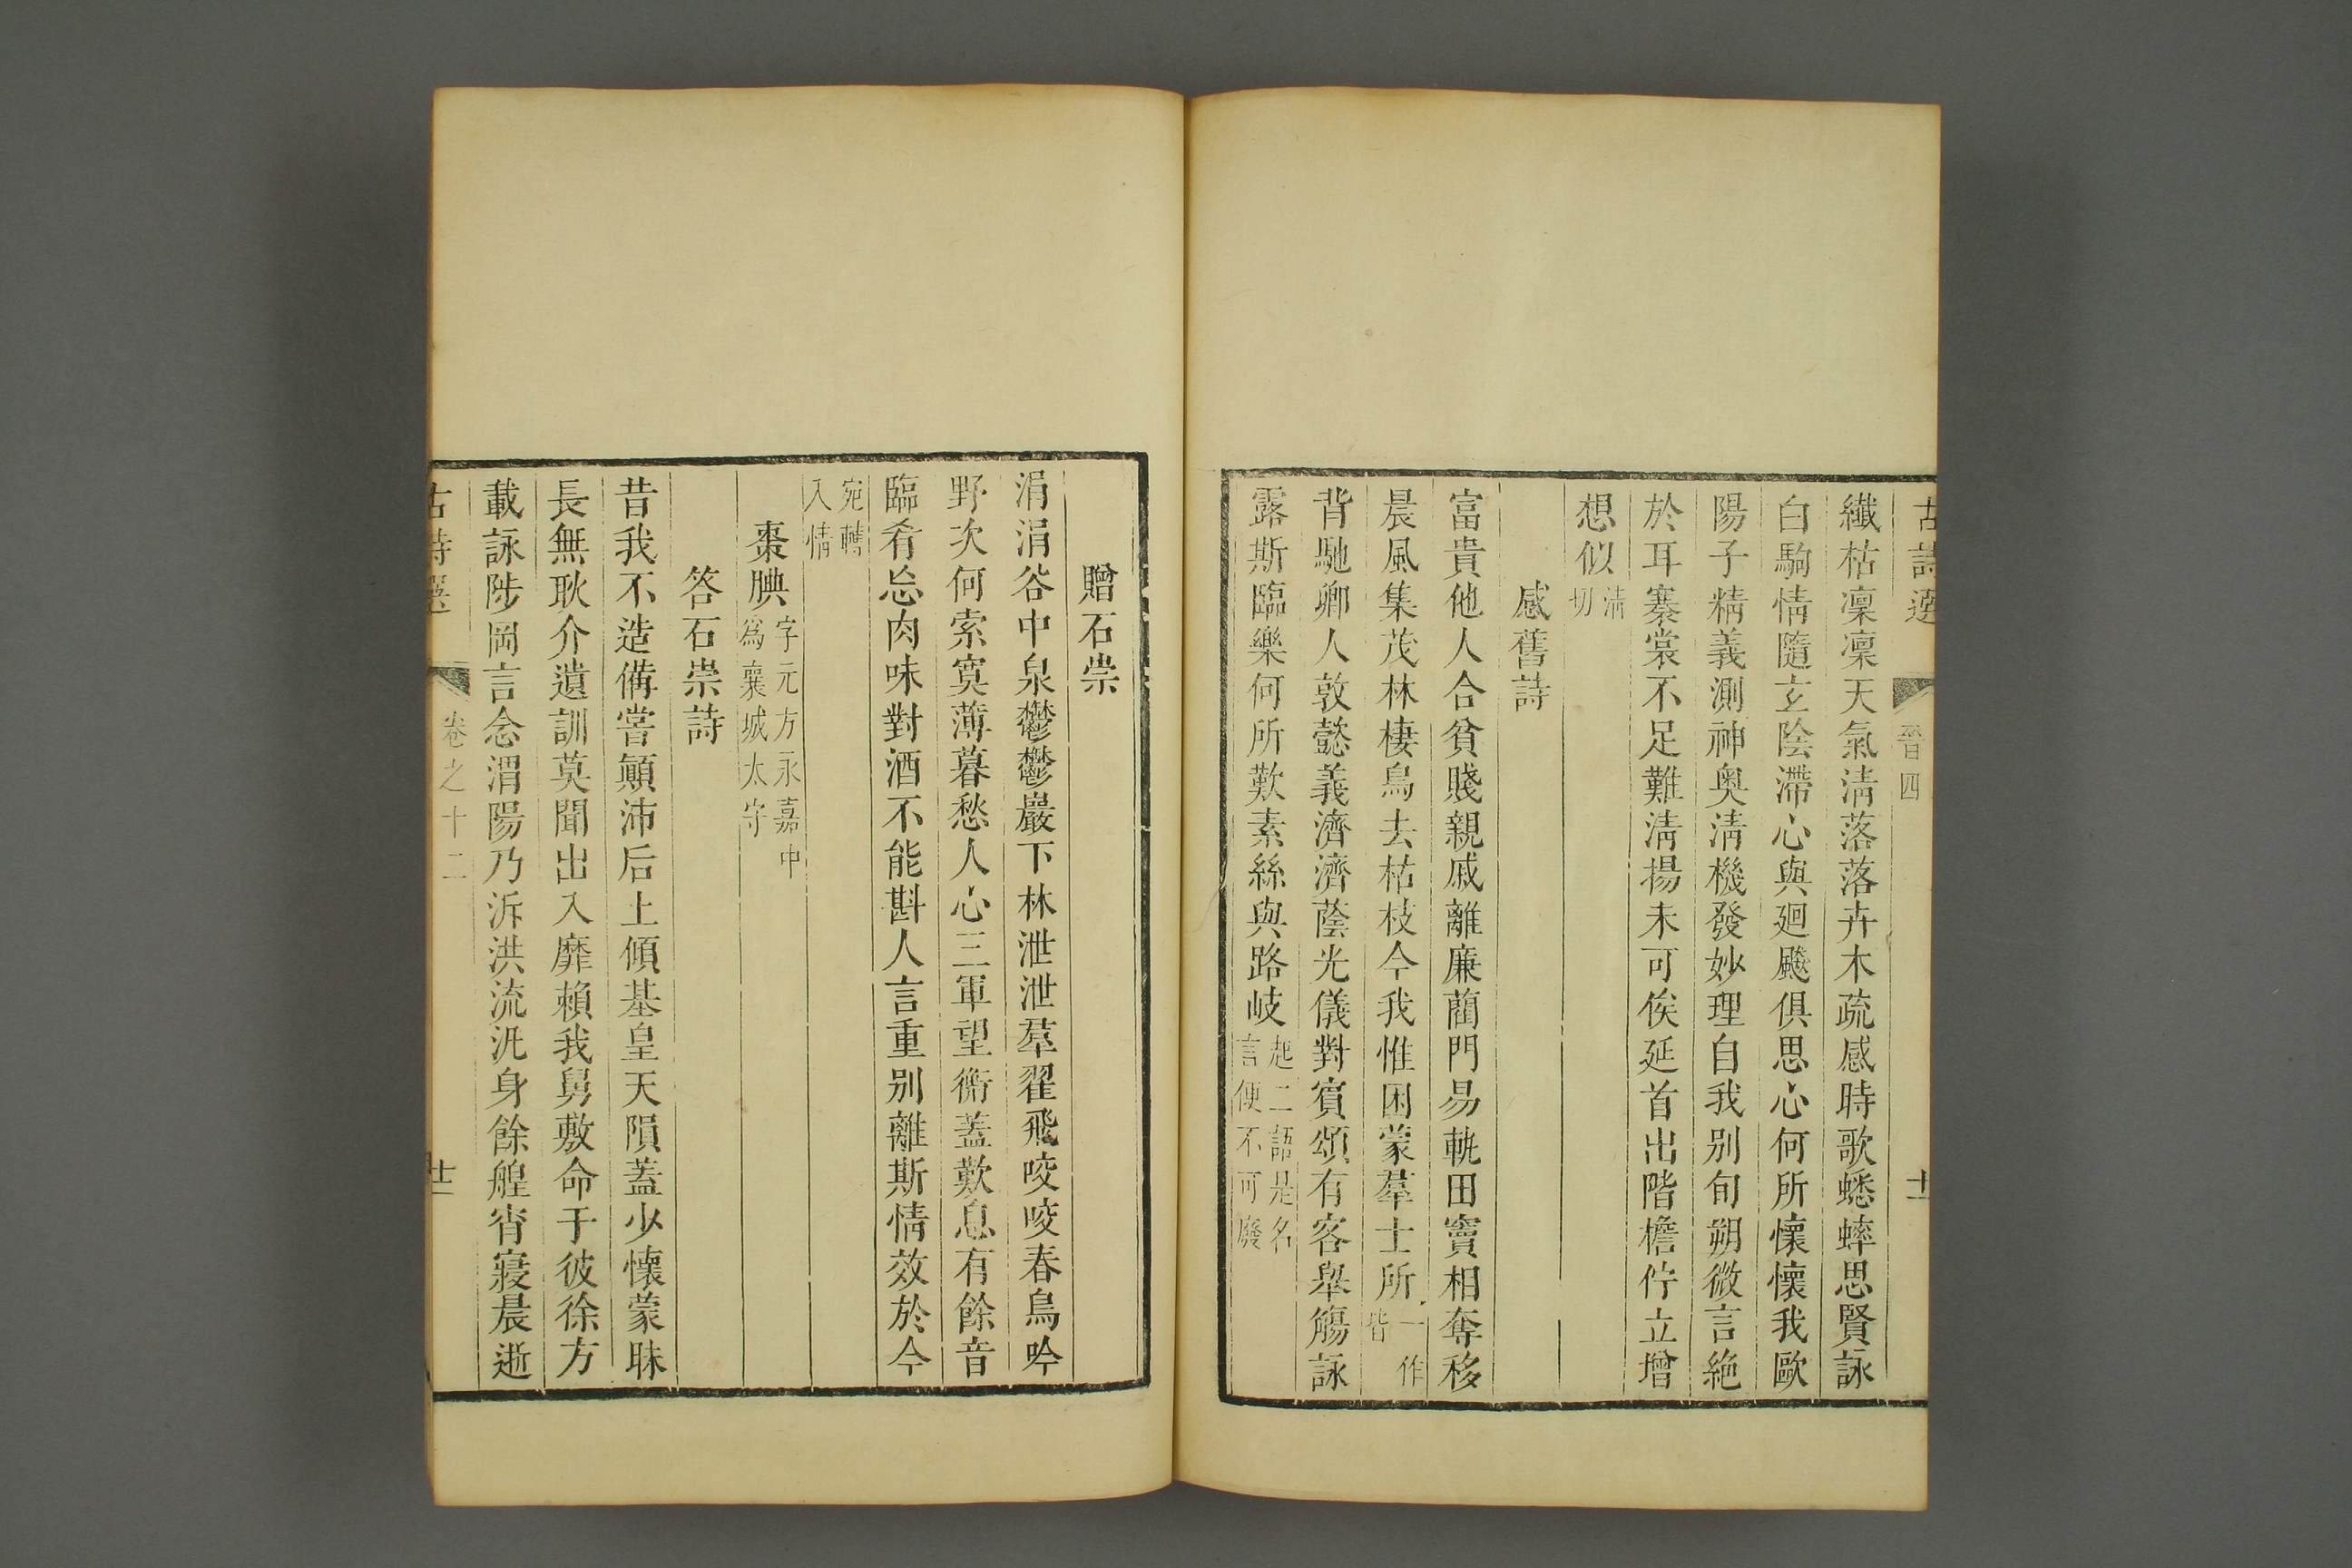 古詩選 晉四 十一
纖枯凜凜天氣淸落落卉木疏感時歌蟋蟀思賢詠
白駒情隨玄陰滯心與廻飈俱思心何所懷懷我歐
陽子精義測神奧淸機發妙理自我别旬朔微言絶
於耳褰裳不足難淸揚未可俟延首出階檐佇立增
想似淸切
感舊詩
富貴他人合貧賤親戚離廉藺門易軌田竇相奪移
晨風集茂林棲鳥去枯枝今我惟困蒙羣士所一作皆
背馳鄉人敦懿義濟濟蔭光儀對賓頌有客舉觴詠
露斯臨樂何所歎素絲與路岐起二語是名言便不可廢
贈石崇
涓涓谷中泉鬱鬱巖下林泄泄羣翟飛咬咬春鳥吟
野次何索寞薄暮愁人心三軍望衡蓋歎息有餘音
臨肴忘肉味對酒不能斟人言重别離斯情效於今
宛轉入情
棗腆字元方永嘉中爲襄城太守
答石崇詩
昔我不造備嘗顚沛后土傾基皇天隕蓋少懷蒙昧
長無耿介遺訓莫聞出入靡賴我舅敷命于彼徐方
載詠陟岡言念渭陽乃泝洪流汎身餘艎宵寢晨逝
古詩選 卷之十二 十一